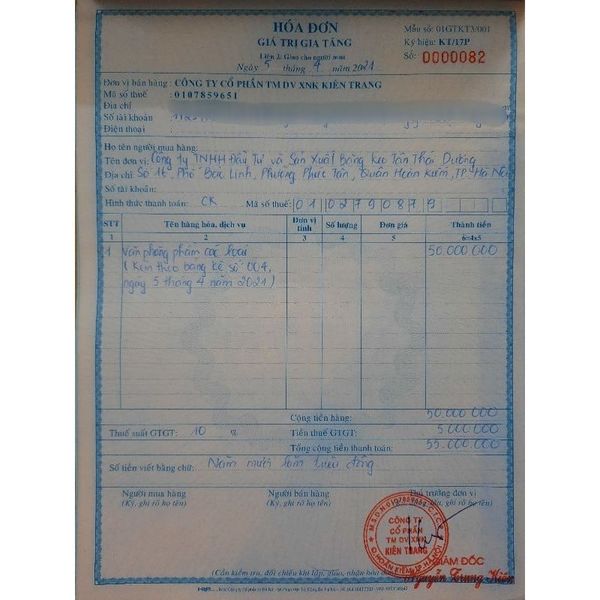 HÓA ĐƠN
GIÁ TRỊ GIA TĂNG
Liên 2: Giao cho người mua
Ngày 5 tháng 4 năm 2021
Mẫu số: 01GTKT3/001
Ký hiệu: KT/17P
Số: 0000082
Đơn vị bán hàng: CÔNG TY CỔ PHẦN TM DV XNK KIÊN TRANG
Mã số thuế : 0107859651
Địa chỉ
Số tài khoản
Điện thoại :
Họ tên người mua hàng:
Tên đơn vị: Công ty TNHH Đầu Tư và Sản Xuất Băng Keo Tân Thái Dương
Địa chỉ: Số 16, Phố Bảo Linh, Phường Phúc Tân, Quận Hoàn Kiếm, TP. Hà Nội
Số tài khoản:
Hình thức thanh toán: CK Mã số thuế: 0102790879
STT Tên hàng hóa, dịch vụ Đơn vị tính Số lượng Đơn giá Thành tiền
1 2 3 4 5 6=4x5
1 Văn phòng phẩm các loại 50.000.000
(Kèm theo bảng kê số 004,
ngày 5 tháng 4 năm 2021)
Cộng tiền hàng: 50.000.000
Thuế suất GTGT: 10 % Tiền thuế GTGT: 5.000.000
Tổng cộng tiền thanh toán: 55.000.000
Số tiền viết bằng chữ: Năm mươi lăm triệu đồng
Người mua hàng Người bán hàng Thủ trưởng đơn vị
(Ký, ghi rõ họ tên) (Ký, ghi rõ họ tên) (Ký, ghi rõ họ tên)
M.S.D.N:0107859651-C.T.C.P
CÔNG TY
CỔ PHẦN
TM DV XNK
KIÊN TRANG
Q.HOÀN KIẾM-TP.HÀ NỘI
GIÁM ĐỐC
Nguyễn Trung Kiên
(Cần kiểm tra, đối chiếu khi lập, giao, nhận hóa đơn)